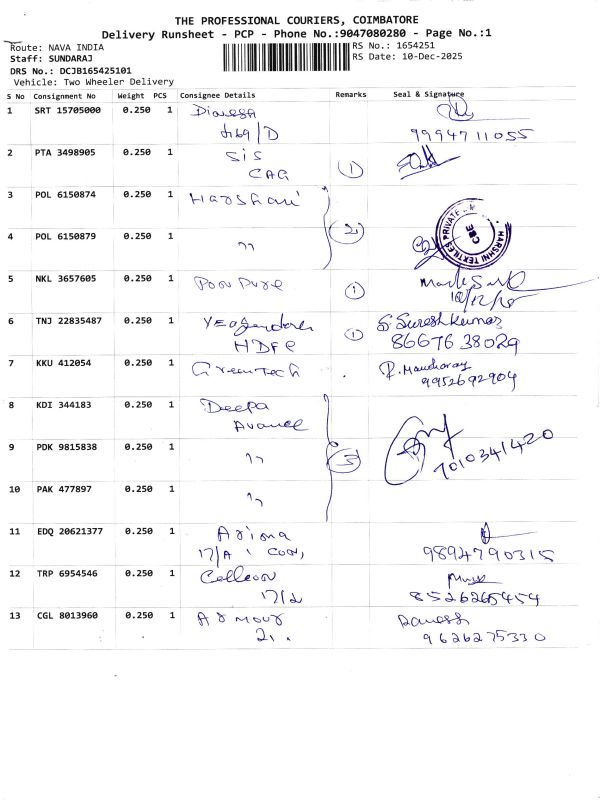 THE PROFESSIONAL COURIERS, COIMBATORE
Delivery Runsheet - PCP - Phone No.:9047080280 - Page No.:1
Route: NAVA INDIA
RS No.: 1654251
Staff: SUNDARAJ
RS Date: 10-Dec-2025
DRS No.: DCJB165425101
Vehicle: Two Wheeler Delivery
S No Consignment No Weight PCS Consignee Details Remarks Seal & Signature
1 SRT 15705000 0.250 1
9994711055
2 PTA 3498905 0.250 1 SiS
CAG 1
3 POL 6150874 0.250 1 Harshani
2
HARSHNI TEXTILES PRIVATE
CBE
4 POL 6150879 0.250 1 "
5 NKL 3657605 0.250 1 Poou Pure 1
6 TNJ 22835487 0.250 1 1 S. Suresh Kumar
HDFC 86676 38029
7 KKU 412054 0.250 1 GreenTech R. Manoharan
9952692904
8 KDI 344183 0.250 1 Deepa
9 PDK 9815838 0.250 1 " 3 7010341420
10 PAK 477897 0.250 1 "
11 EDQ 20621377 0.250 1
17/A 9894790315
12 TRP 6954546 0.250 1
17/2 8526265454
13 CGL 8013960 0.250 1 Armour
21. 9626275330